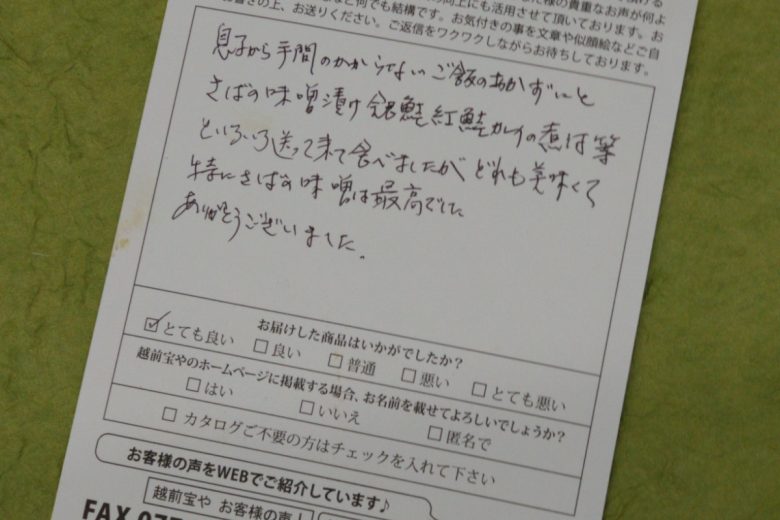 た様の貴重なお声が何よ
の向上にも活用させて頂いております。お
など何でも結構です。お気付きの事を文章や似顔絵などご自
の上、お送りください。ご返信をワクワクしながらお待ちしております。
息子から手間のかからないご飯のおかずにと
さばの味噌漬け 銀鮭 紅鮭 の煮は等
といろいろ送って来て食べましたが どれも美味くて
特にさばの味噌は最高でした
ありがとうございました。
お届けした商品はいかがでしたか?
☑とても良い □良い □普通 □悪い □とても悪い
越前宝やのホームページに掲載する場合、お名前を載せてよろしいでしょうか?
□はい □いいえ □匿名で
□ カタログご不要の方はチェックを入れて下さい
お客様の声をWEBでご紹介しています♪
越前宝や お客様の声
FAX 077